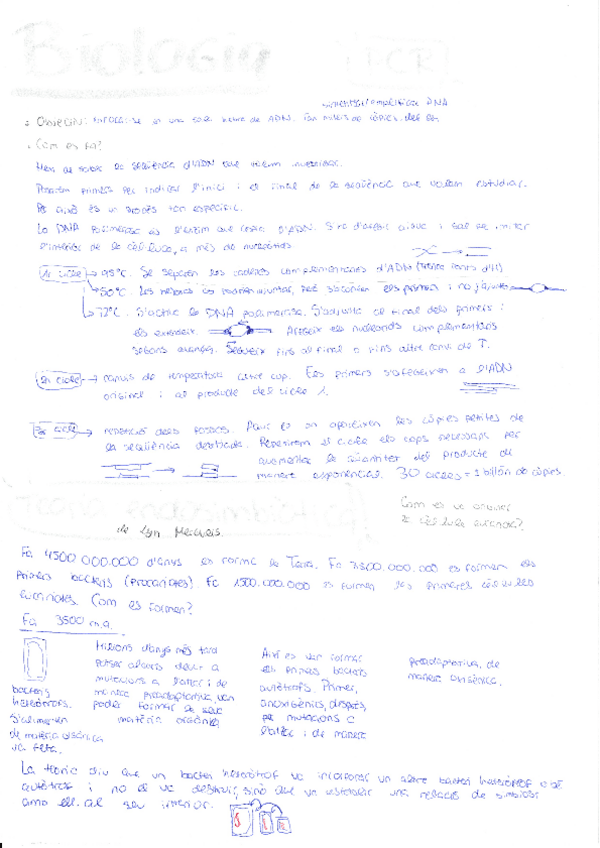 Biologia
PCR
sintetitzar/amplificar DNA
Objectiu: enfocar-se en una sola lectura de ADN. Fan milers de còpies del
Com es fa?
Hem de saber la seqüència d'ADN que volem
Posarem primers per indicar l'inici i el final de la seqüència que volem estudiar.
Per això és un procés tan específic.
La DNA polimerasa és l'enzim que copia l'ADN. S'ha d'afegir aigua i sal per imitar
l'interior de la cèl·lula, a més de nucleòtids
1r cicle → 95ºC. Se separen les cadenes complementàries d'ADN
50ºC. Les hebres es poden ajuntar, però s'acoblen els primers i no
72ºC. S'activa la DNA polimerasa. S'adjunta al final dels primers i
els estendrà. Afegeix els nucleòtids complementaris
segons avança. Segueix fins al final o fins altre canvi de T.
2n cicle → canvis de temperatura altre cop. Els primers s'afegeixen a l'ADN
original i al producte del cicle 1.
3r cicle → repetició dels passos. Però ja apareixen les còpies petites de
la seqüència desitjada. Repetirem el cicle els cops necessaris per
augmentar la quantitat del producte de
manera exponencial. 30 cicles = 1 billón de còpies.
Teoria endosimbiòtica
de Lyn Margulis
Com es va originar
la cèl·lula eucariota?
Fa 4500 000.000 d'anys es forma la Terra. Fa 3500.000.000 es formen els
primers bacteris (procariotes). Fa 1500.000.000 es formen les primeres cèl·lules
eucariotes. Com es formen?
Fa 3500 m.a.
bacteris
heteròtrofs.
S'alimenten
de matèria orgànica
ja feta.
Milions d'anys més tard
potser alguns degut a
mutacions a l'atzar i de
manera preadaptativa, van
poder formar la seva
matèria orgànica
Així es van formar
els primers bacteris
autòtrofs. Primer,
anoxigènics, després,
per mutacions a
l'atzar i de manera
preadaptativa, de
manera oxigènica.
La teoria diu que un bacteri heteròtrof va incorporar un altre bacteri heteròtrof o bé
autòtrof i no el va destruir, sinó que va establir una relació de simbiosi
amb ell al seu interior.